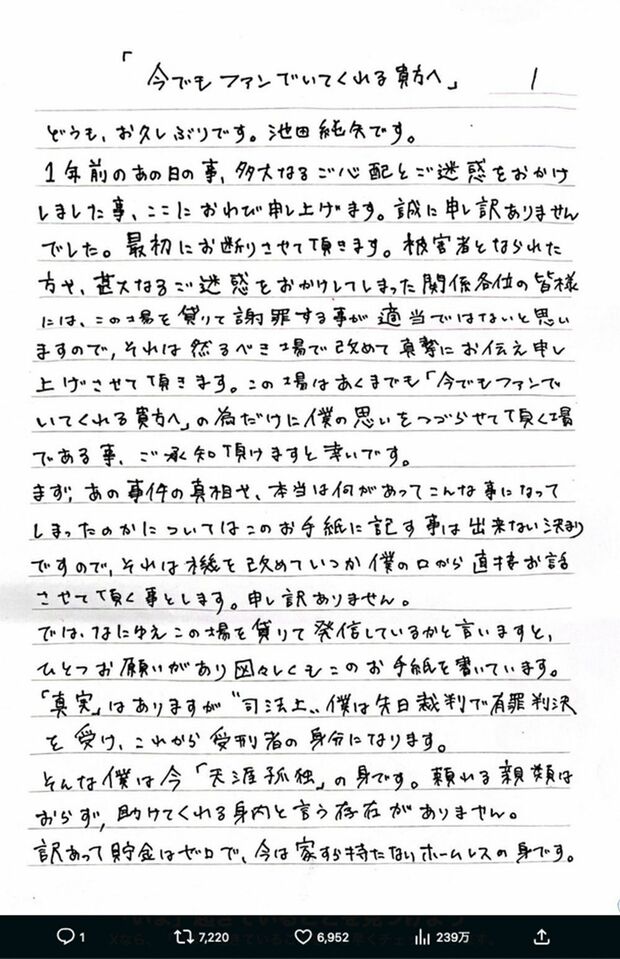 「今でもファンでいてくれる貴方へ」 1
どうも、お久しぶりです。池田純矢です。
1年前のあの日の事、多大なるご心配とご迷惑をおかけ
しました事、ここにおわび申し上げます。誠に申し訳ありません
でした。最初にお断りさせて頂きます。被害者となられた
方や、甚大なるご迷惑をおかけしてしまった関係各位の皆様
には、この場を貸りて謝罪する事が適当ではないと思い
ますので、それは然るべき場で改めて真摯にお伝え申し
上げさせて頂きます。この場はあくまでも「今でもファンで
いてくれる貴方へ」の為だけに僕の思いをつづらせて頂く場
である事、ご承知頂けますと幸いです。
まず、あの事件の真相や、本当は何があってこんな事になって
しまったのかについてはこのお手紙に記す事は出来ない決まり
ですので、それは機を改めていつか僕の口から直接お話
させて頂く事とします。申し訳ありません。
では、なにゆえこの場を貸りて発信しているかと言いますと、
ひとつお願いがあり図々しくもこのお手紙を書いています。
「真実」はありますが"司法上"、僕は先日裁判で有罪判決
を受け、これから受刑者の身分になります。
そんな僕は今「天涯孤独」の身です。頼れる親類は
おらず、助けてくれる身内と言う存在がありません。
訳あって貯金はゼロで、今は家すら持たないホームレスの身です。
1 7,220 6,952 239万